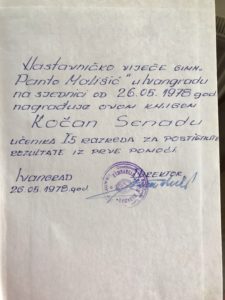 Nastavničko vijeće gimn.
"Panto Mališić" u Ivangradu
na sjednici od 26.05.1978 god
nagrađuje ovom knjigom
Kočan Senadu
učenika I5 razreda za postignute
rezultate iz prve pomoći.
Ivangrad
DIREKTOR
26.05.1978.god.